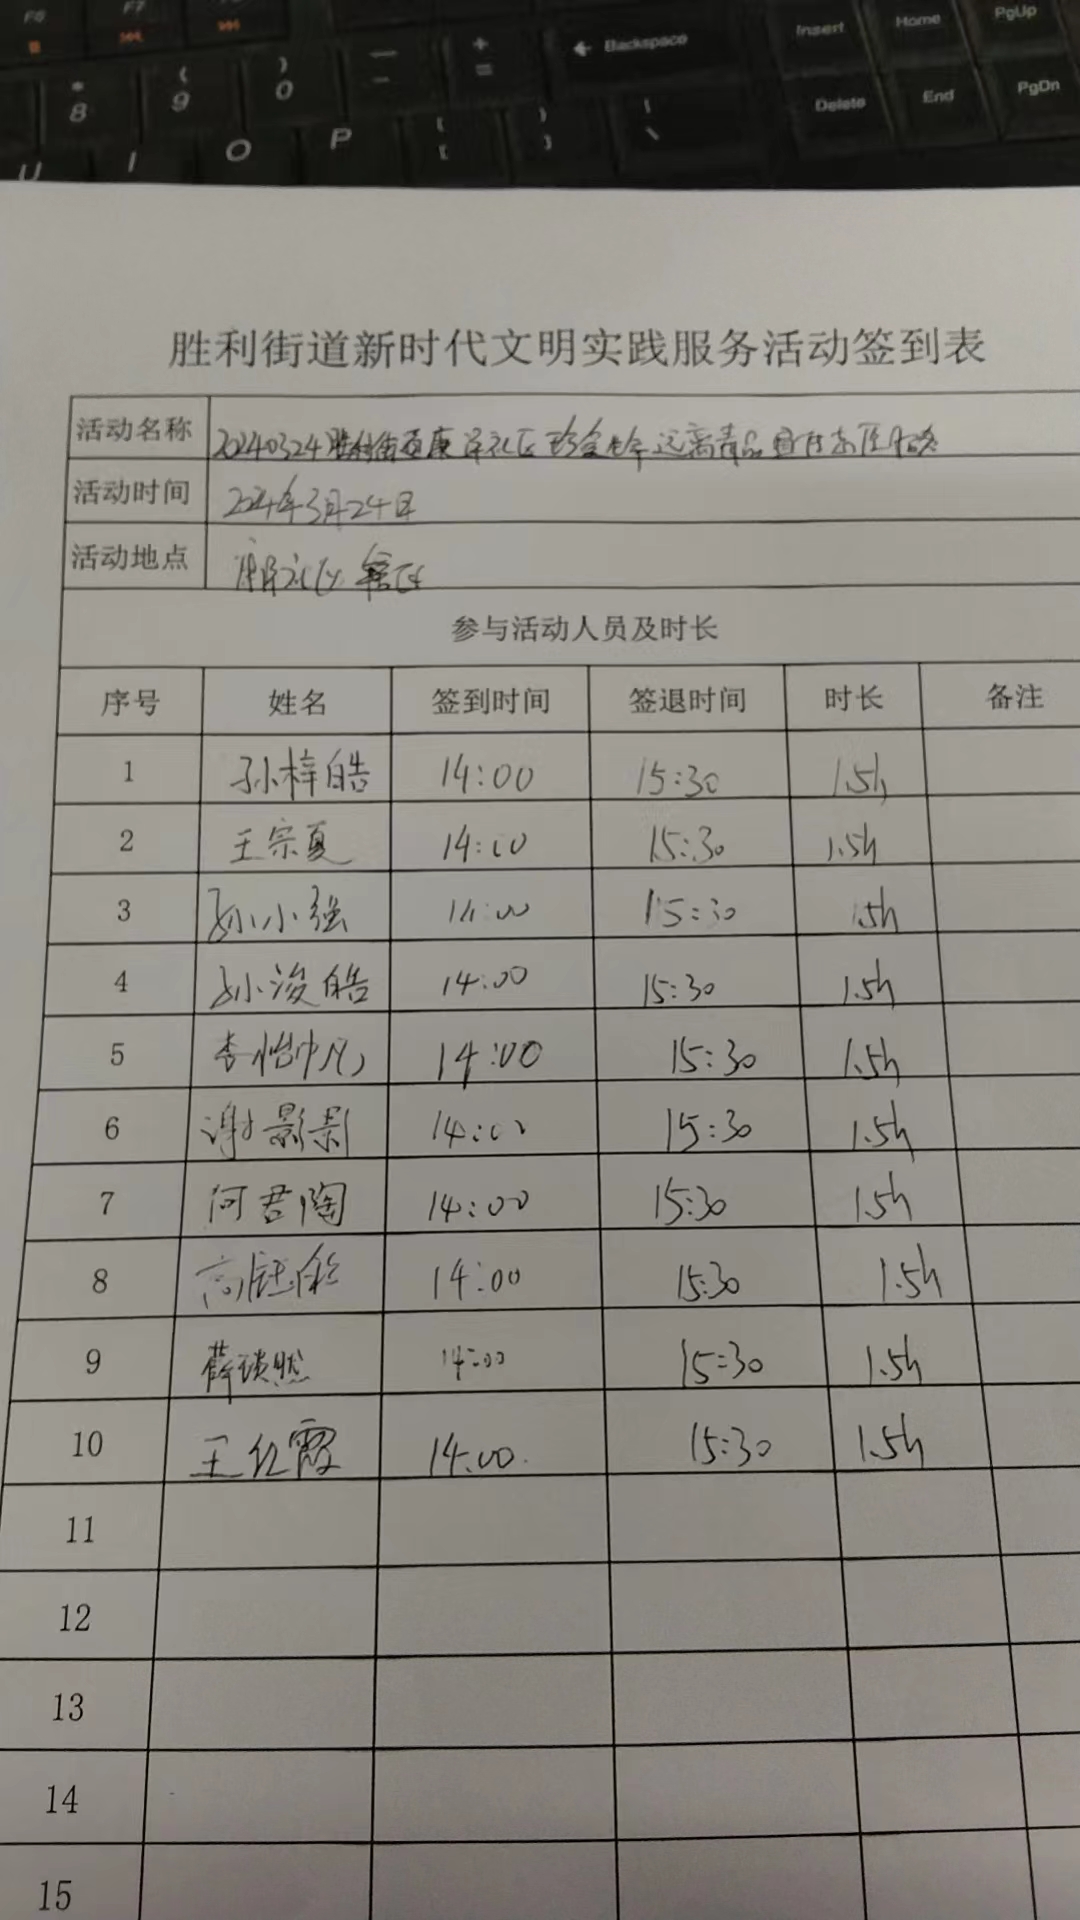 F6 F7
* 8 ( 9 ) 0 — - + = ← Backspace Insert Home PgUp
U I O P { [ } ] | \ Delete End PgDn
胜利街道新时代文明实践服务活动签到表
活动名称 20240324胜利街道康 社区 远离毒品宣传
活动时间 2024年3月24日
活动地点 社区
参与活动人员及时长
序号 姓名 签到时间 签退时间 时长 备注
1 孙梓皓 14:00 15:30 1.5h
2 王宗夏 14:00 15:30 1.5h
3 孙小强 14:00 15:30 1.5h
4 孙浚皓 14:00 15:30 1.5h
5 李怡帆 14:00 15:30 1.5h
6 谢影影 14:00 15:30 1.5h
7 何君陶 14:00 15:30 1.5h
8 高 14:00 15:30 1.5h
9 薛 然 14:00 15:30 1.5h
10 王红霞 14:00. 15:30 1.5h
11
12
13
14
15